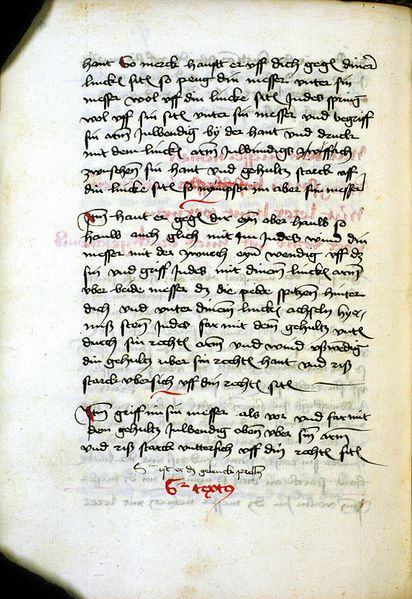 hant So merck hauwt er vff dich gege dine
lincke site so heng din messer vnter sin
messer wol vff din lincke site Indes spring
wol vff sin site vnter sin messer vnd begriff
sin arm Inwendig by der hant vnd druck
mit dem lincke arm Inwendigs
zwischen sin hant vnd gehultz starck vff
din lincke site so nympstu im aber sin messer
Item haut er gege dir eyn ober hauw so
hauw auch glich mit Im Indes wind din
messer mit der wendig vff das
sin vnd griff Indes mit dinem lincke arm
vber beide messer das die bede spitzen hinter
dich vnd vnter dinem lincke achseln
steen Indes far mit dem gehultz vnte
durch sin rechte arm vnd wind vßwendig
din gehultz vber sin rechte hant vnd riß
starck vbersich vff din rechte site
Item griff im sin messer als vor vnd far mit
dem gehultz Inwendig oben vber sin arm
vnd riß starck vnttersich vff din rechte site